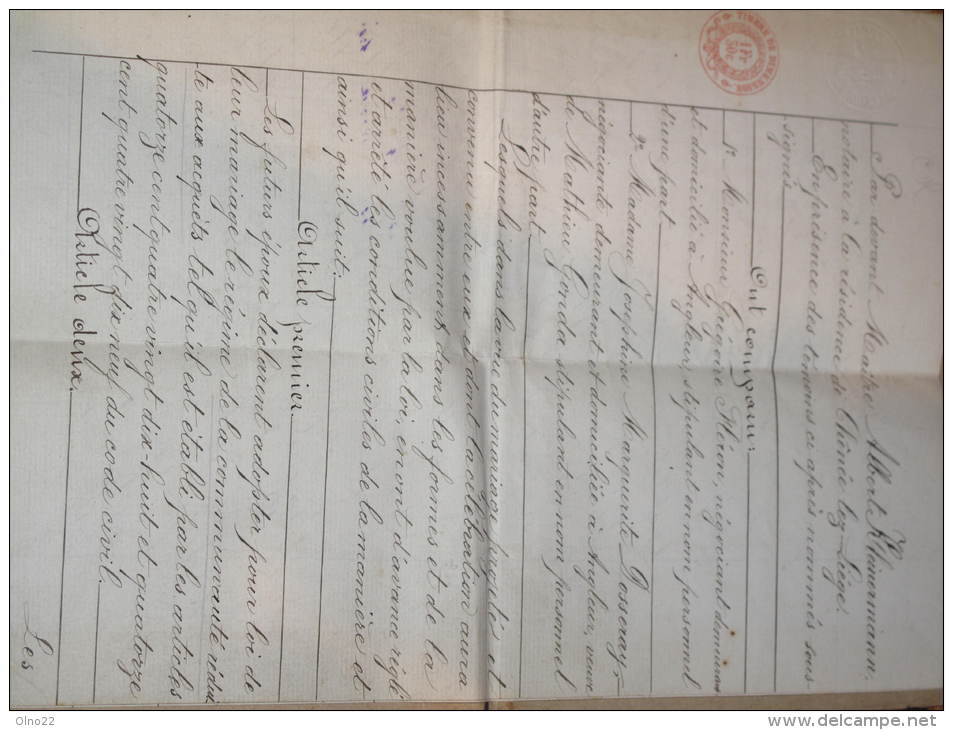 TIMBRE DE DIMENSION
1 FR
Par devant Maître Albert Kleinermann,
notaire à la résidence de Chênée lez-Liège.
En présence des témoins ci après nommés sous-
signés
Ont comparu:
1° Monsieur Grégoire Héron, négociant
et domicilié à Angleur, stipulant en nom personnel
d'une part
2° Madame Joséphine Marguerite Desseray
négociante demeurant et domiciliée à Angleur, veuve
de Mathieu Gonda stipulant en nom personnel
d'autre part
Lesquels dans la vue du mariage projeté et
convenu entre eux et dont la célébration aura
lieu incessamment dans les formes et de la
manière voulue par la loi, en ont d'avance réglé
et arrêté les conditions civiles de la manière et
ainsi qu'il suit:
Article premier
Les futurs époux déclarent adopter pour loi de
leur mariage le régime de la communauté rédui
te aux acquêts tel qu'il est établi par les articles
quatorze cent quatre vingt dix-huit et quatorze
cent quatre vingt dix neuf du code civil.
Article deux.
Les
Olno22